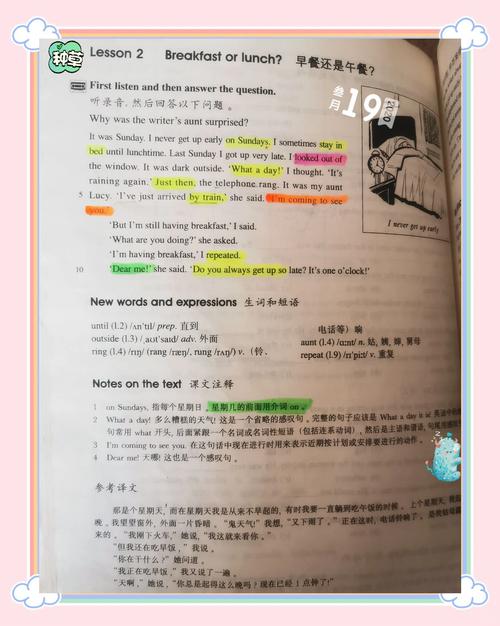 种草
Lesson 2 Breakfast or lunch? 早餐还是午餐？
First listen and then answer the question.
听录音，然后回答以下问题。
叁月19
2020
Why was the writer's aunt surprised?
It was Sunday. I never get up early on Sundays. I sometimes stay in
bed until lunchtime. Last Sunday I got up very late. I looked out of
the window. It was dark outside. 'What a day!' I thought. 'It's
raining again.' Just then, the telephone rang. It was my aunt
5 Lucy. 'I've just arrived by train,' she said. 'I'm coming to see
you.'
'But I'm still having breakfast,' I said.
'What are you doing?' she asked.
'I'm having breakfast,' I repeated.
10 'Dear me!' she said. 'Do you always get up so late? It's one o'clock!'
I never get up early
New words and expressions 生词和短语
until (l.2) /ʌn'tɪl/ prep. 直到
outside (l.3) /ˌaʊt'saɪd/ adv. 外面
ring (l.4) /rɪŋ/ (rang /ræŋ/, rung /rʌŋ/) v. (铃、
电话等) 响
aunt (l.4) /ɑːnt/ n. 姑，姨，婶，舅母
repeat (l.9) /rɪ'piːt/ v. 重复
Notes on the text 课文注释
1 on Sundays, 指每个星期日。星期几的前面用介词 on。
2 What a day! 多么糟糕的天气！这是一个省略的感叹句。完整的句子应该是 What a day it is! 英语中的
句常用 what 开头，后面紧跟一个名词或名词性短语（包括连系动词），然后是主语和谓语，句尾用
3 I'm coming to see you. 在这句话中现在进行时用来表示近期按计划或安排要进行的动作。
4 Dear me! 天哪！这也是一个感叹句。
参考译文
那是个星期天，而在星期天我是从来不早起的，有时我要一直躺到吃午饭的时候。上个星期天，我起
晚。我望望窗外，外面一片昏暗。“鬼天气！”我想，“又下雨了。”正在这时，电话铃响了。是我姑母
来的。“我刚下火车，”她说，“我这就来看你。”
“但我还在吃早饭，”我说。
“你在干什么？”她问道。
“我正在吃早饭，”我又说了一遍。
“天啊，”她说，“你总是起得这么晚吗？现在已经1点钟了！”